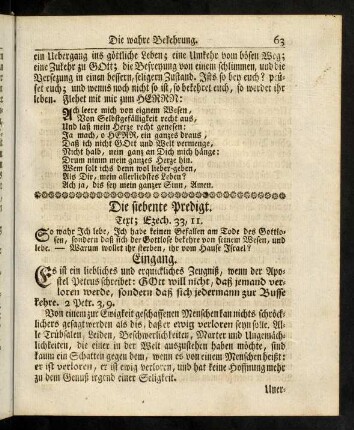 Die wahre Bekehrung. 63
ein Uebergang ins göttliche Leben; eine Umkehr vom bösen Weg;
eine Zukehr zu GOtt; die Befreyung von einem schlimmen, und die
Versezung in einen bessern, seligern Zustand. Ists so bey euch? prü-
fet euch; und wenns noch nicht so ist, so bekehret euch, so werdet ihr
leben. Flehet mit mir zum HERRN:
Ach leere mich von eignem Wesen,
Von Selbstgefälligkeit recht aus,
Und laß mein Herze recht genesen:
Ja mach, o HERR, ein ganzes draus,
Daß ich nicht GOtt und Welt vermenge,
Nicht bald, mein ganz an Dich mich hänge:
Drum nimm mein ganzes Herze hin.
Wem solt ichs denn wol lieber geben,
Als Dir, mein allerliebstes Leben?
Ach ja, dis sey mein ganzer Sinn, Amen.
Die siebente Predigt.
Text; Ezech. 33, 11.
So wahr Ich lebe, Ich habe keinen Gefallen am Tode des Gottlo-
sen, sondern daß sich der Gottlose bekehre von seinem Wesen, und
lebe. — Warum wollet ihr sterben, ihr vom Hause Israel?
Eingang.
Es ist ein liebliches und erquickliches Zeugniß, wenn der Apo-
stel Petrus schreibet: GOtt will nicht, daß jemand ver-
loren werde, sondern daß sich jedermann zur Busse
kehre. 2 Petr. 3, 9.
Von einem zur Ewigkeit geschaffenen Menschen kan nichts schröck-
lichers gesagt werden als dis, daß er ewig verloren seyn solle. Al-
le Trübsalen, Leiden, Beschwerlichkeiten, Marter und Ungemäch-
lichkeiten, die einer in der Welt auszustehen haben möchte, sind
kaum ein Schatten gegen dem, wenn es von einem Menschen heißt:
er ist verloren, er ist ewig verloren, und hat keine Hoffnung mehr
zu dem Genuß irgend einer Seligkeit.
Uner-